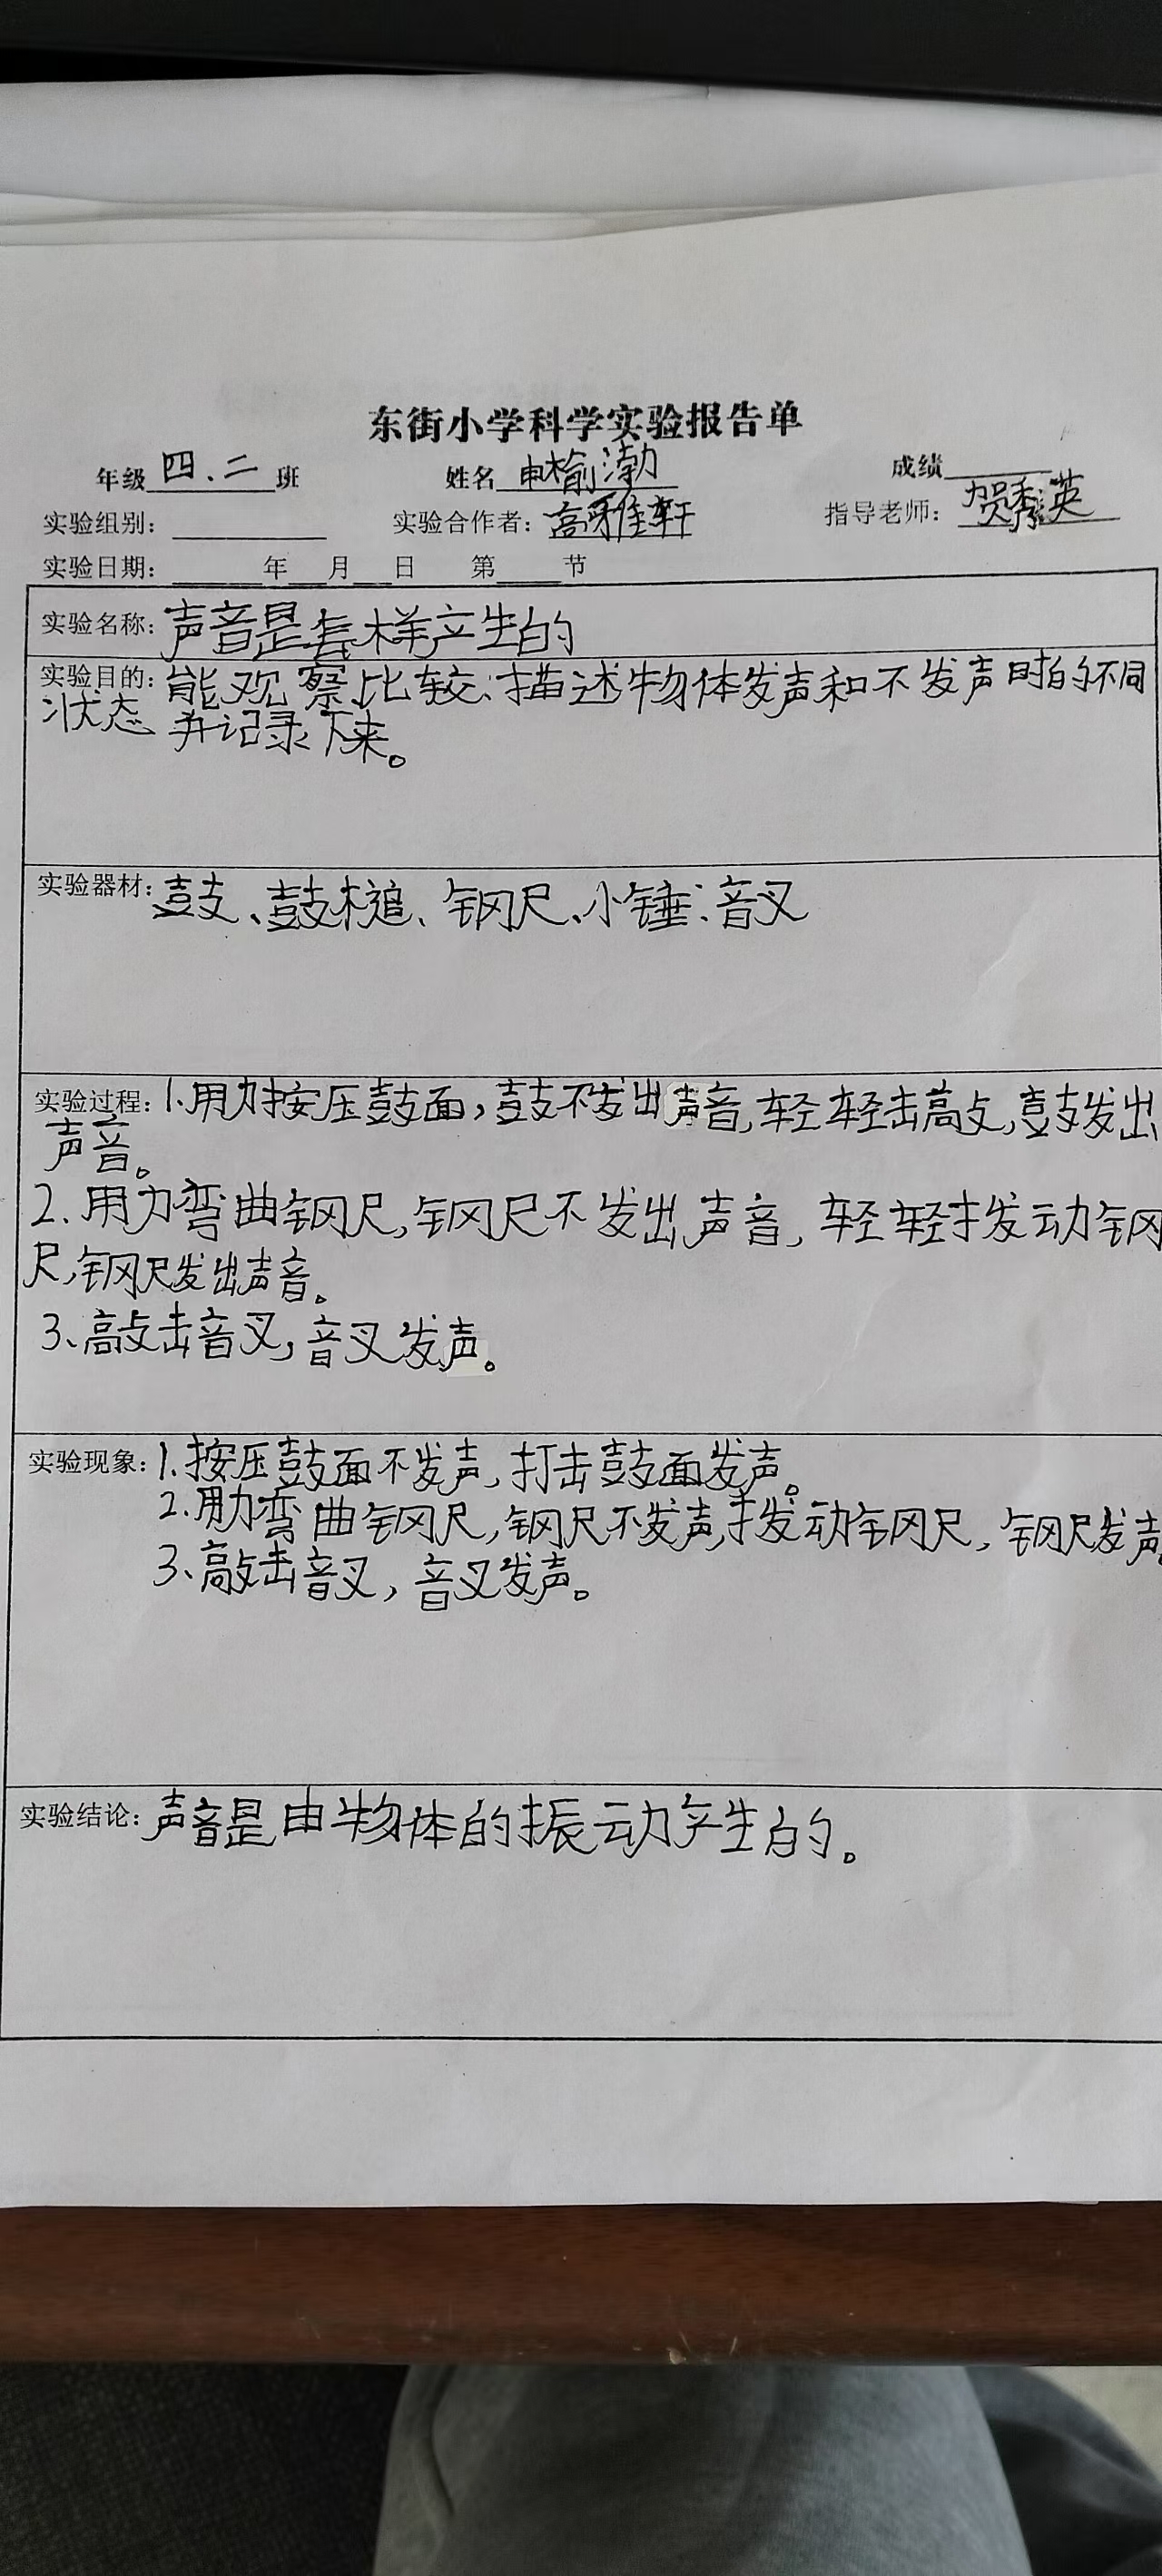 东街小学科学实验报告单
年级 四.二 班 姓名 申榆渤 成绩
实验组别: 实验合作者: 高雅轩 指导老师: 贺秀英
实验日期: 年 月 日 第 节
实验名称: 声音是怎样产生的
实验目的: 能观察比较、描述物体发声和不发声时的不同
状态 并记录下来。
实验器材: 鼓、鼓槌、钢尺、小锤、音叉
实验过程: 1.用力按压鼓面,鼓不发出声音,轻轻击敲,鼓发出
声音。
2.用力弯曲钢尺,钢尺不发出声音,轻轻拨动钢
尺,钢尺发出声音。
3、敲击音叉,音叉发声。
实验现象: 1.按压鼓面不发声,打击鼓面发声。
2.用力弯曲钢尺,钢尺不发声,拨动钢尺,钢尺发声。
3、敲击音叉,音叉发声。
实验结论: 声音是由物体的振动产生的。